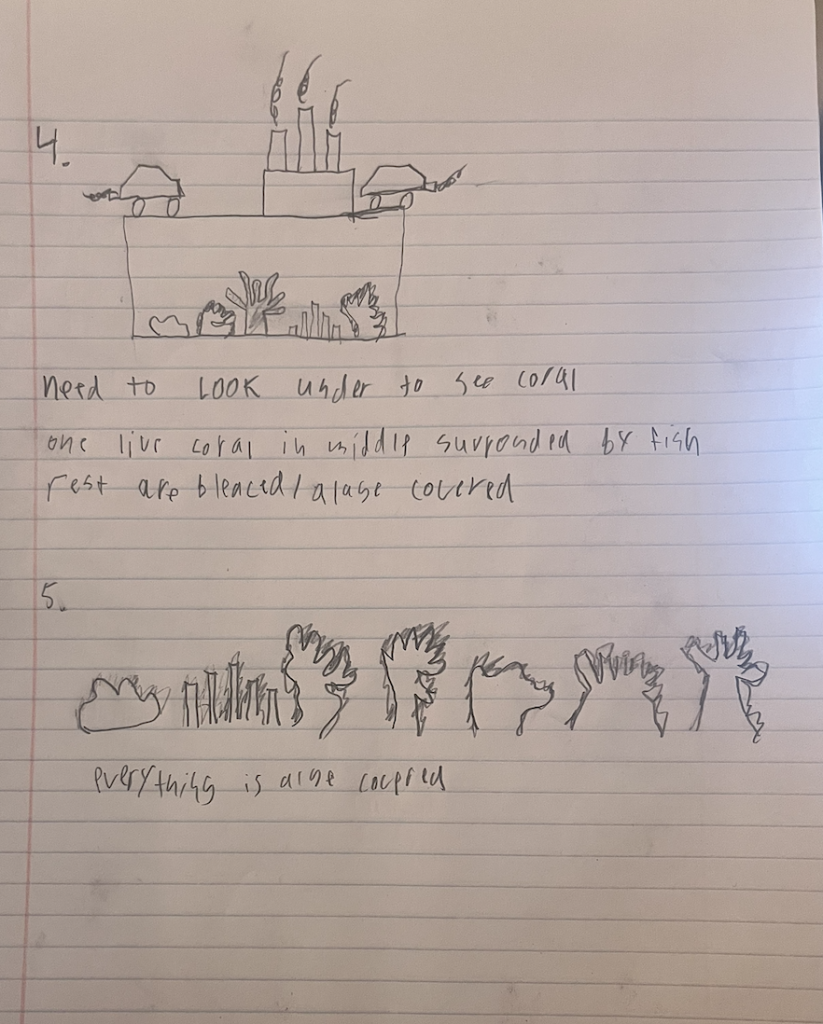 4.
need to LOOK under to see coral
one live coral in middle surrounded by fish
rest are bleaced/alage covered
5.
everything is alge covered